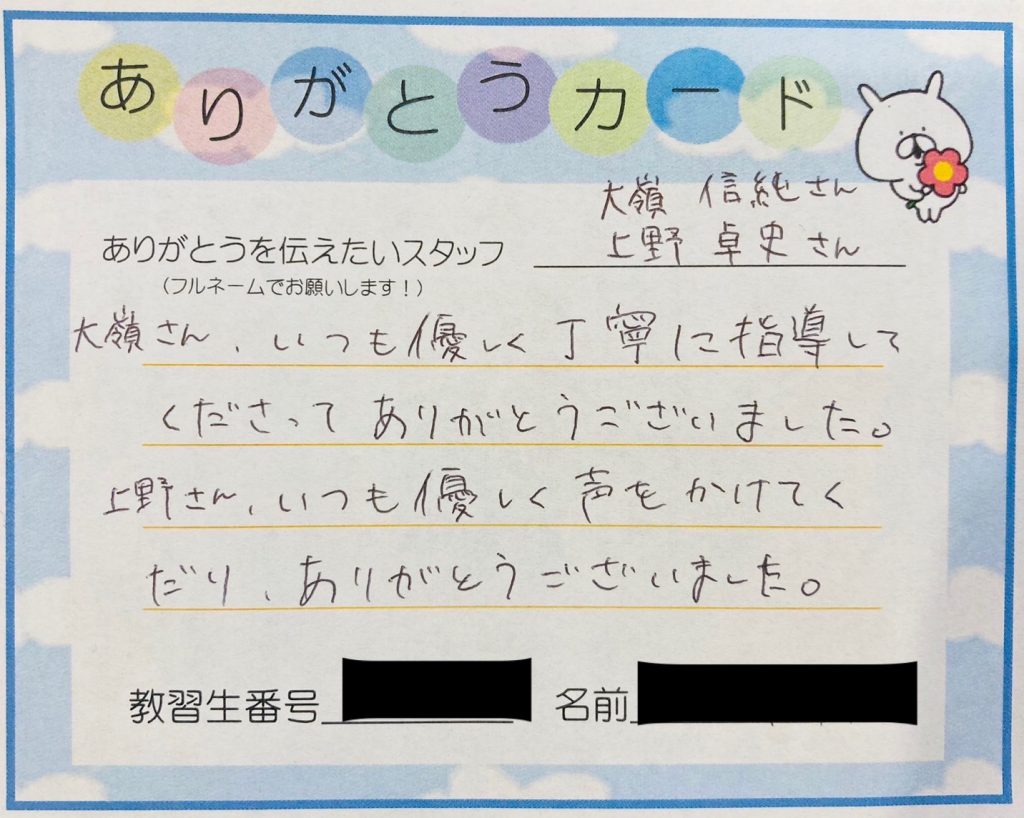 ありがとうカード
大嶺 信純さん
上野 卓史さん
ありがとうを伝えたいスタッフ
(フルネームでお願いします！)
大嶺さん、いつも優しく丁寧に指導して
くださって ありがとうございました。
上野さん、いつも優しく声をかけてく
だり、ありがとうございました。
教習生番号
名前